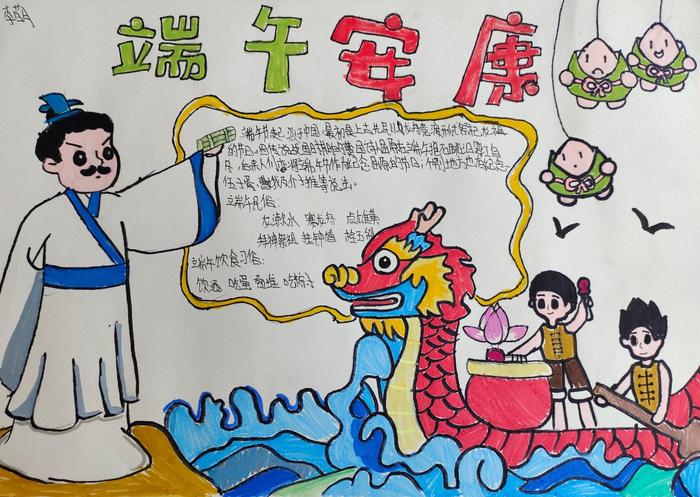 端午安康
端午节起源于中国,最初是上古先民以龙舟竞渡形式祭祀龙祖
的节日。因传说战国时期的楚国诗人屈原在端午跳汨罗江自
尽,后来人们亦将端午节作为纪念屈原的节日;个别地方也有纪念
伍子胥、曹娥及介子推等说法。
端午习俗:
龙潮水 赛龙舟 点雄黄
拜神祭祖 挂钟馗
端午饮食习俗:
饮酒 吃蛋 吃粽子